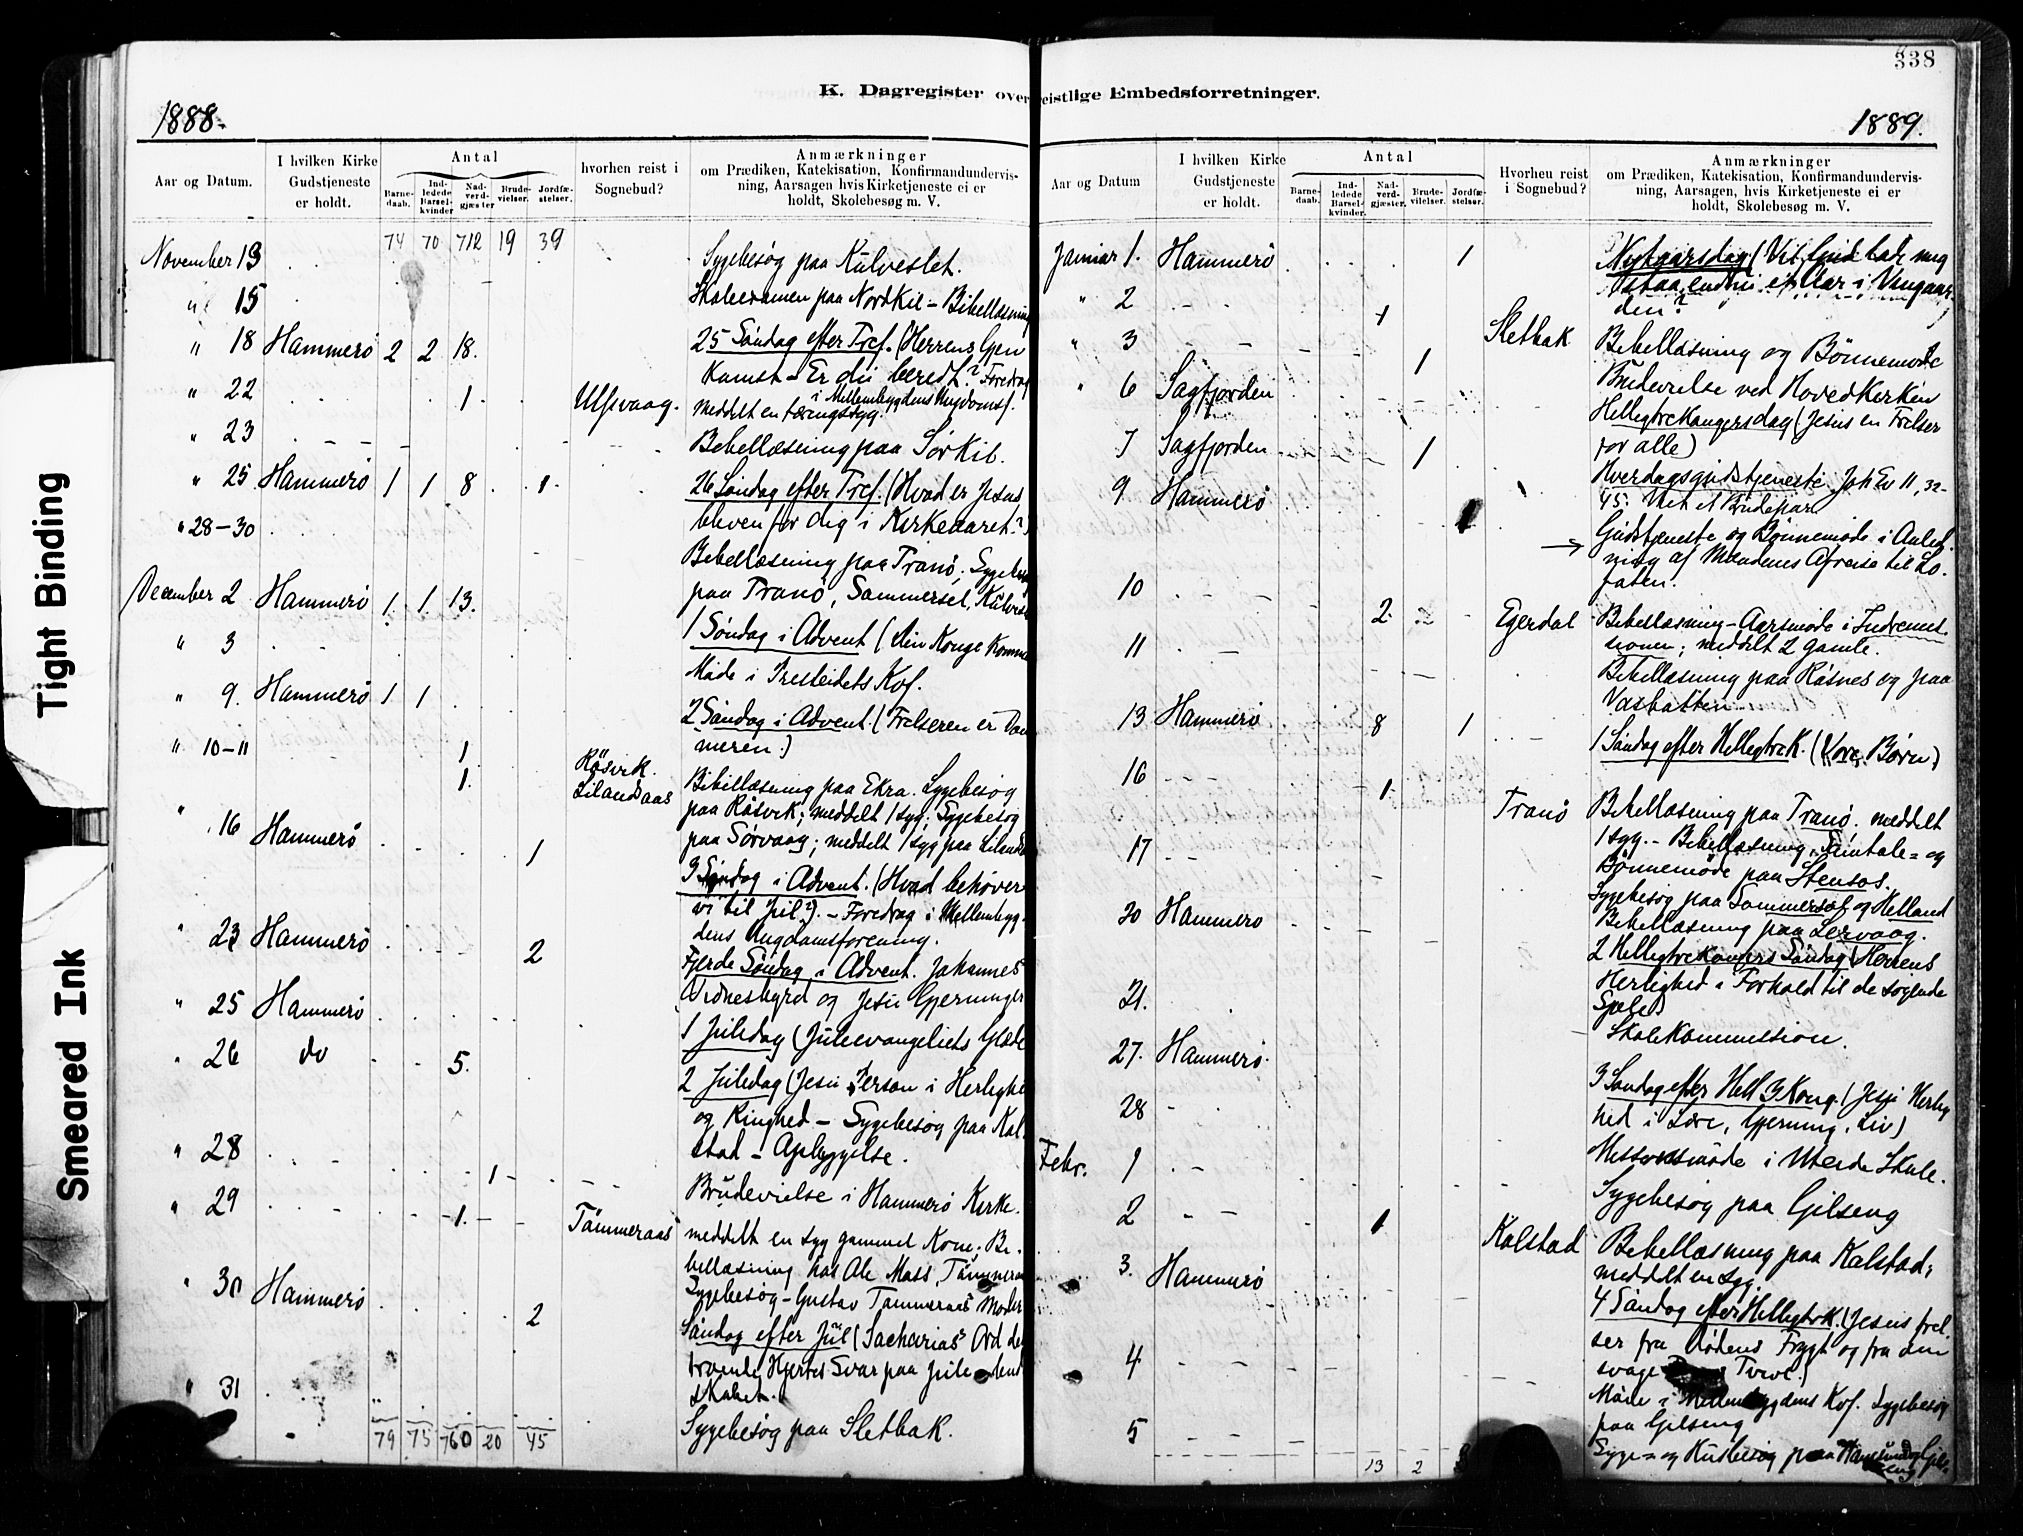 Tight Binding
Smeared Ink
338
K. Dagregister over
eistlige Embedsforretninger.
1888.
1889.
Aar og Datum.
I hvilken Kirke
Gudstjeneste
er holdt.
Antal
Barne-
daab.
Ind-
ledede
Barsel-
kvinder
Nad-
verd-
gjæster
Brude-
vielser.
Jordfæ-
stelser.
hvorhen reist i
Sognebud?
Anmærkninger
om Prædiken, Katekisation, Konfirmandundervis-
ning, Aarsagen hvis Kirketjeneste ei er
holdt, Skolebesøg m. V.
74 70 712 19 39
November 13
Sygebesøg paa Kulveslet.
" 15
Skoleexamen paa Nordkil - Bibellæsning
" 18 Hammerö 2 2 18.
25 Søndag efter Tref. (Herrens Gjen
Komst - Er du beredt? Foredrag
i Mellembygdens Ungdomsf.
" 22 1 Ulfsvaag.
meddelt en tæringssyg.
" 23
Bibellæsning paa Sörkil.
" 25 Hammerö 1 1 8 1
26 Søndag efter Tref. (Hvad er Jesus
bleven for dig i Kirkeaaret?)
" 28-30
Bibellæsning paa Tranö. Sygebesøg
paa Tranö, Sommersel,
December 2 Hammerö 1. 1. 13.
1 Søndag i Advent (Din Konge kommer
" 3
Møde i Presteidets Kof.
" 9. Hammerö 1 1
2 Søndag i Advent. (Frelseren er Dom
meren.)
" 10-11 1 Røsvik.
1. Lilandsaas
Bibellæsning paa Ekra. Sygebesøg
paa Røsvik; meddelt 1 syg; Sygebesøg
paa Sørvaag; meddelt 1 syg paa Lilands
" 16 Hammerö 1
3 Søndag i Advent. (Hvad behøver
vi til Jul?). - Foredrag i Mellembyg-
dens Ungdomsforening.
" 23 Hammerö 2
Fjerde Søndag i Advent. Johannes
Vidnesbyrd og Jesu Gjerninger
" 25 Hammerö
1 Juledag (Juleevangeliets Glæde
" 26 do 5.
2 Juledag (Jesu Person i Herlighe
og Ringhed - Sygebesøg paa Kal-
stad - Opbyggelse.
" 28 1
Brudevielse i Hammerö Kirke.
" 29 1. Tömmeraas
meddelt en syg gammel Kone; Bi-
bellæsning hos Ole Mats. Tömmeraas
Sygebesøg - Gustav Tømmeraas Moder
" 30 Hammerö 2
Søndag efter Jul (Sacharias Ord de
troende Hjertes Svar paa Jule bud
skabet.
" 31
Sygebesøg paa Sletbak.
79 75 760 20 45
Aar og Datum
I hvilken Kirke
Gudstjeneste
er holdt.
Antal
Barne-
daab.
Ind-
ledede
Barsel-
kvinder.
Nad-
verd-
gjæster.
Brude-
vilelser.
Jordfæ-
stelser.
Hvorheu reist
i Sognebud?
Anmærkninger
om Prædiken, Katekisation, Konfirmandundervis-
ning, Aarsagen, hvis Kirketjeneste ei er
holdt, Skolebesøg m. V.
Januar 1. Hammerö 1
Nytaarsdag (Vil Gud lade mig
staa endnu et Aar i Vingaar-
den?)
" 2 1 Sletbak
Bibellæsning og Bønnemøde
" 3 1
Brudevielse ved Hovedkirken
" 6 Sagfjorden
Helligtrekongersdag (Jesus en Frelser
for alle)
7 Sagfjorden 1
Hverdagsgudstjeneste. Joh Ev 11, 32-
45. Viet et Brudepar
9 Hammerö
Gudstjeneste og Bønnemøde i Anled-
ning af Mændenes Afreise til Lo-
foten.
10 2. Egerdal
Bibellæsning - Aarsmøde i Indremis-
sionen; meddelt 2 gamle.
11
Bibellæsning paa Røsnes og paa
Vasbotten
13 Hammerö 8 1
1 Søndag efter Helligtrek. (Vore Børn)
16 1 Tranö
Bibellæsning paa Tranö. meddelt
1 syg. - Bibellæsning, Samtale- og
Bønnemøde paa Stensos.
17
Sygebesøg paa Sommersel og Helland
Bibellæsning paa Lervaag.
20 Hammerö
2 Helligtrekongers Søndag (Herrens
Herlighed i Forhold til de søgende
Sjæle)
21.
Skolekommission.
27. Hammerö.
3 Søndag efter Hell 3 Kong. (Jesu Herlig
hed i Lære, Gjerning, Liv)
28
Missionsmøde i Uteide Skole.
Febr. 1
Sygebesøg paa Gjilseng
2 1 Kalstad
Bibellæsning paa Kalstad;
meddelt en syg.
3. Hammerö
4 Søndag efter Helligtrk. (Jesus frel-
ser fra Dødens Frygt og fra den
svage Tvivl.)
4
Møde i Mellembygdens Kof. Sygebesøg
paa Gjilseng
5
Syge- og Husbesøg paa
13 2